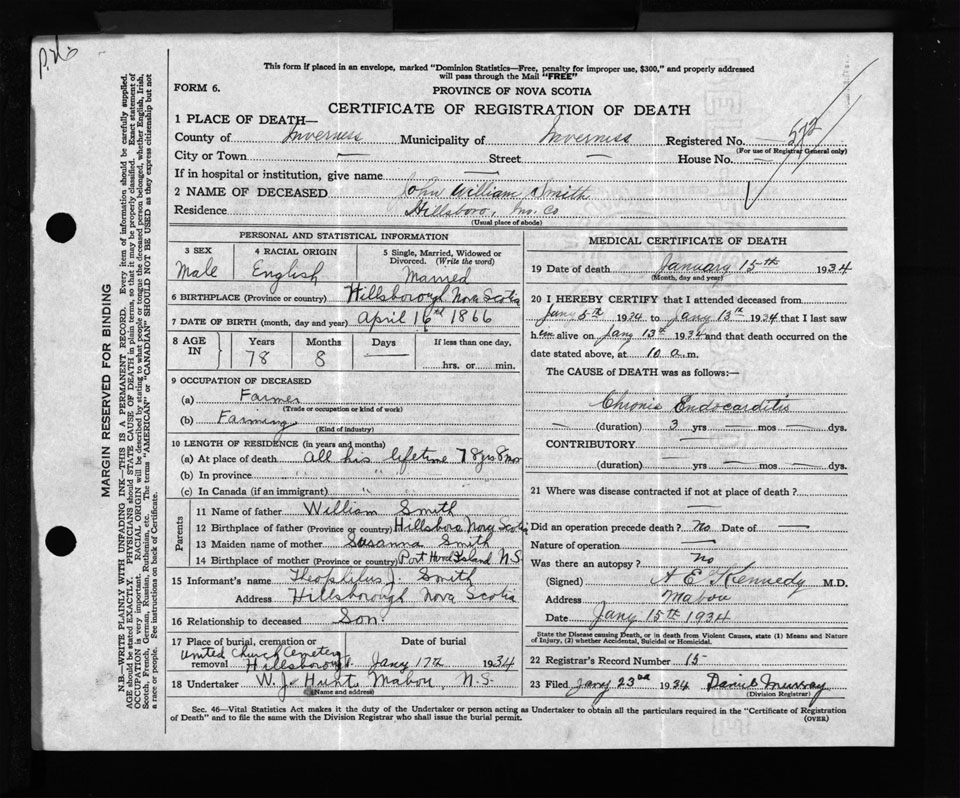 P.No
This form if placed in an envelope, marked "Dominion Statistics—Free, penalty for improper use, $300," and properly addressed
will pass through the Mail "FREE"
FORM 6.
PROVINCE OF NOVA SCOTIA
CERTIFICATE OF REGISTRATION OF DEATH
1 PLACE OF DEATH—
County of Inverness Municipality of Inverness Registered No. 512
(For use of Registrar General only)
City or Town — Street — House No. —
If in hospital or institution, give name —
2 NAME OF DECEASED John William Smith
Residence Hillsboro, Inv. Co
(Usual place of abode)
PERSONAL AND STATISTICAL INFORMATION
3 SEX Male
4 RACIAL ORIGIN English
5 Single, Married, Widowed or
Divorced. (Write the word)
Married
6 BIRTHPLACE (Province or country) Hillsborough Nova Scotia
7 DATE OF BIRTH (month, day and year) April 16 1866
8 AGE IN
Years Months Days If less than one day,
78 8 — hrs. or min.
9 OCCUPATION OF DECEASED
(a) Farmer
(Trade or occupation or kind of work)
(b) Farming
(Kind of industry)
10 LENGTH OF RESIDENCE (in years and months)
(a) At place of death All his lifetime 78yrs 8mos
(b) In province " "
(c) In Canada (if an immigrant) " "
Parents
11 Name of father William Smith
12 Birthplace of father (Province or country) Hillsboro Nova Scotia
13 Maiden name of mother Susanna Smith
14 Birthplace of mother (Province or country) Port Hood Island N.S
15 Informant's name Theophilus J. Smith
Address Hillsborough Nova Scotia
16 Relationship to deceased Son
17 Place of burial, cremation or removal Date of burial
United Church Cemetery
Hillsborough Jany 17th 1934
18 Undertaker W. J. Hunt, Mabou, N.S.
(Name and address)
MEDICAL CERTIFICATE OF DEATH
19 Date of death January 15th 1934
(Month, day and year)
20 I HEREBY CERTIFY that I attended deceased from
Jany 5th 1934 to Jany 13th 1934 that I last saw
him alive on Jany 13th 1934 and that death occurred on the
date stated above, at 10 a.m.
The CAUSE of DEATH was as follows:—
Chronic Endocarditis
— (duration) 3 yrs — mos — dys.
CONTRIBUTORY —
(duration) — yrs — mos — dys.
21 Where was disease contracted if not at place of death?
—
Did an operation precede death? No Date of —
Nature of operation —
Was there an autopsy? No
(Signed) A E Kennedy M.D.
Address Mabou
Date Jany 15th 1934
State the Disease causing Death, or in death from Violent Causes, state (1) Means and Nature
of Injury, (2) whether Accidental, Suicidal or Homicidal.
22 Registrar's Record Number 15
23 Filed Jany 23rd 1934 Daniel Murray
(Division Registrar)
Sec. 46—Vital Statistics Act makes it the duty of the Undertaker or person acting as Undertaker to obtain all the particulars required in the "Certificate of Registration
of Death" and to file the same with the Division Registrar who shall issue the burial permit.
(OVER)
MARGIN RESERVED FOR BINDING
N.B.—WRITE PLAINLY WITH UNFADING INK—THIS IS A PERMANENT RECORD. Every item of information should be carefully supplied.
AGE should be stated EXACTLY. PHYSICIANS should STATE CAUSE OF DEATH in plain terms, so that it may be properly classified. Exact statement of
OCCUPATION is very important. RACIAL ORIGIN will be described by stating to what people or tongue the deceased person belonged, whether English, Irish,
Scotch, French, German, Russian, Ruthenian, etc. The terms "AMERICAN" or "CANADIAN" SHOULD NOT BE USED as they express citizenship but not
a race or people. See instructions on back of Certificate.